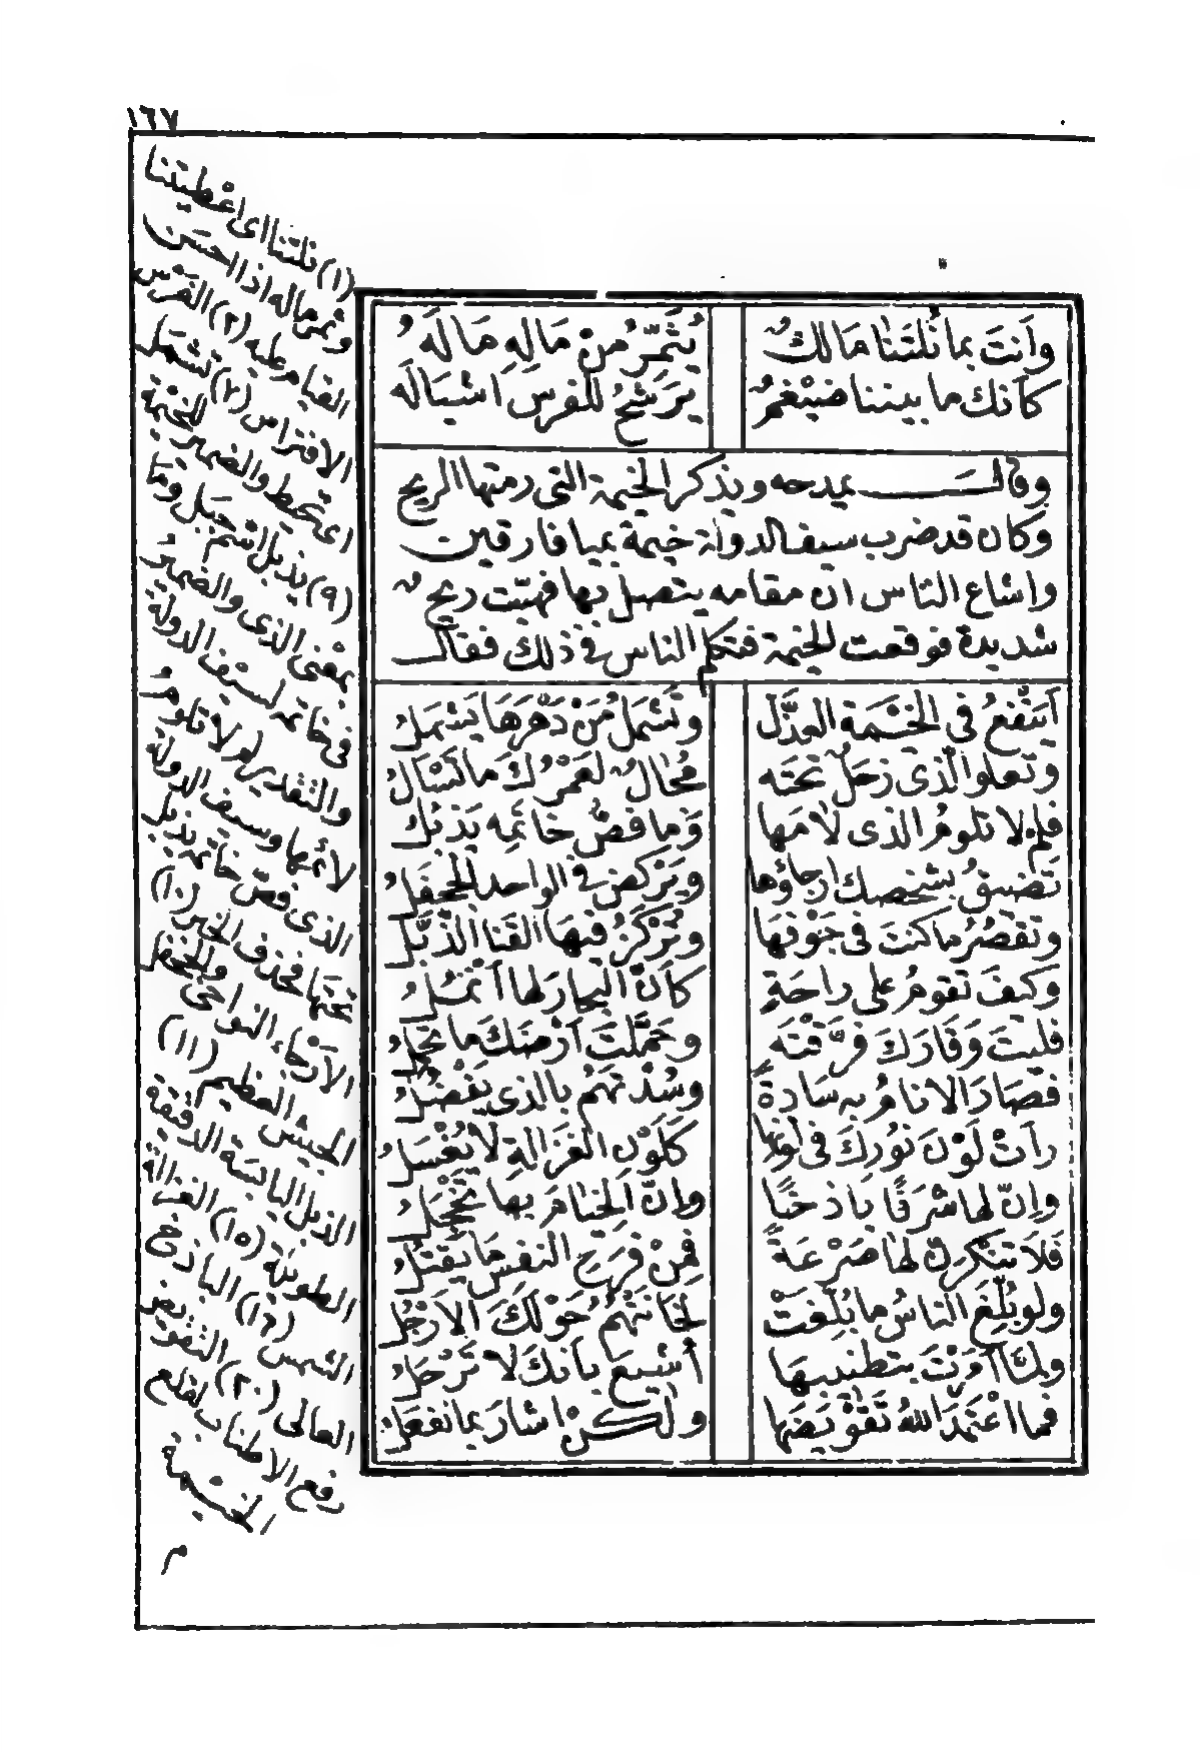 ١٦٧
وَأَنتَ بِمَا نُلْتَنَا مَالِكٌ يُثَمِّرُ مِنْ مَالِهِ مَا لَهُ
كَأَنَّكَ مَا بَيْنَنَا ضَيْغَمٌ يُرَشِّحُ لِلْفَرْسِ اَشْبَالَهُ
وقال يمدحه ويذكر الخيمة التى رمتها الريح
وكان قد ضرب سيف الدولة خيمة بميافارقين
واشاع الناس ان مقامه يتصل بها فهبّت ريح
شديدة فوقعت الخيمة فتكلم الناس فى ذلك فقال
اَيَنْفَعُ فى الخَيْمَةِ العُذَّلُ وَتَشْمَلُ مَنْ دَهْرَهَا يَشْمَلُ
وتعلو الّذى زُحَلٌ تَحْتَه مُحَالٌ لَعَمْرُكَ مَا تُسْأَلُ
فَلِمْ لا تلومُ الذى لامَها وَمَا فَصُّ خَاتَمِهِ يَذْبُلُ
تَضيقُ بشخصك ارجاؤها ويَرْكضُ فى الواحد الجَحْفَلُ
وتَقْصُرُ مَا كنتَ فى جَوْفِهَا وتُرْكَزُ فيهَا القَنَا الذُّبَّلُ
وكيفَ تقومُ على راحةٍ كأنّ البحارَ لها اَنْمُلُ
فليتَ وَقَارَكَ فَرَّقْتَه وحَمَّلتَ اَرْضَكَ ما تحملُ
فَصَارَ الانامُ به سَادةً وسُدْتَهُمُ بالذى يَفْضُلُ
رأتْ لَوْنَ نُورِكَ فى لَوْنِهَا كَلَوْنِ الغَزَالةِ لا يُغْسَلُ
وإنّ لها شَرَفًا بَاذِخًا وإنّ الخيَامَ بِهَا تَخْجَلُ
فلا تُنْكِرِنَّ لهَا صَرْعَةً فمِنْ فَرَحِ النفس مَا يَقْتُلُ
ولو بُلِّغَ الناسُ ما بُلِّغَتْ لَخَانَتْهُمُ حَوْلَكَ الاَرْجُلُ
ولمّا اَمَرْتَ بتطنيبِهَا اُشيعَ بانكَ لا تَرْحَلُ
فما اعْتَمَدَ اللهُ تَقْوِيضَهَا ولكنْ اشارَ بما تفعَلُ
(١) نلتنا اى اعْطيتنا
وثمر ماله اذا احسَن
القيام عليه (٢) الفَرْس
الافتراس (٢) تشمَل
اى تحيط والضمير للخَيْمة
(٩) يذبل اسم جبل وما
بمعْنى الذى والضمير
فى خاتمه لسيْف الدولة
والتقدير لم لا تلوم
لائمها وسيف الدولة
الذى فصّ خاتمه يذبل
تحتها فحذف الخبر (١٠)
الاَرْجاء النواحى والجَحْفل
الجيش العظيم (١١)
الذبل اليابسة الدقيقة
الطويلة (١٥) الغزالة
الشمس (١٦) الباذخ
العالى (٢٠) التقويض
رفع الاطناب لقلع
الخيْمة
م